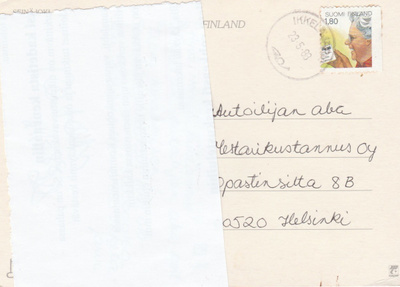 FINLAND
SUOMI FINLAND
1,80
Autoilijan aba
Mestarikustannus Oy
Opastinsilta 8B
00520 Helsinki